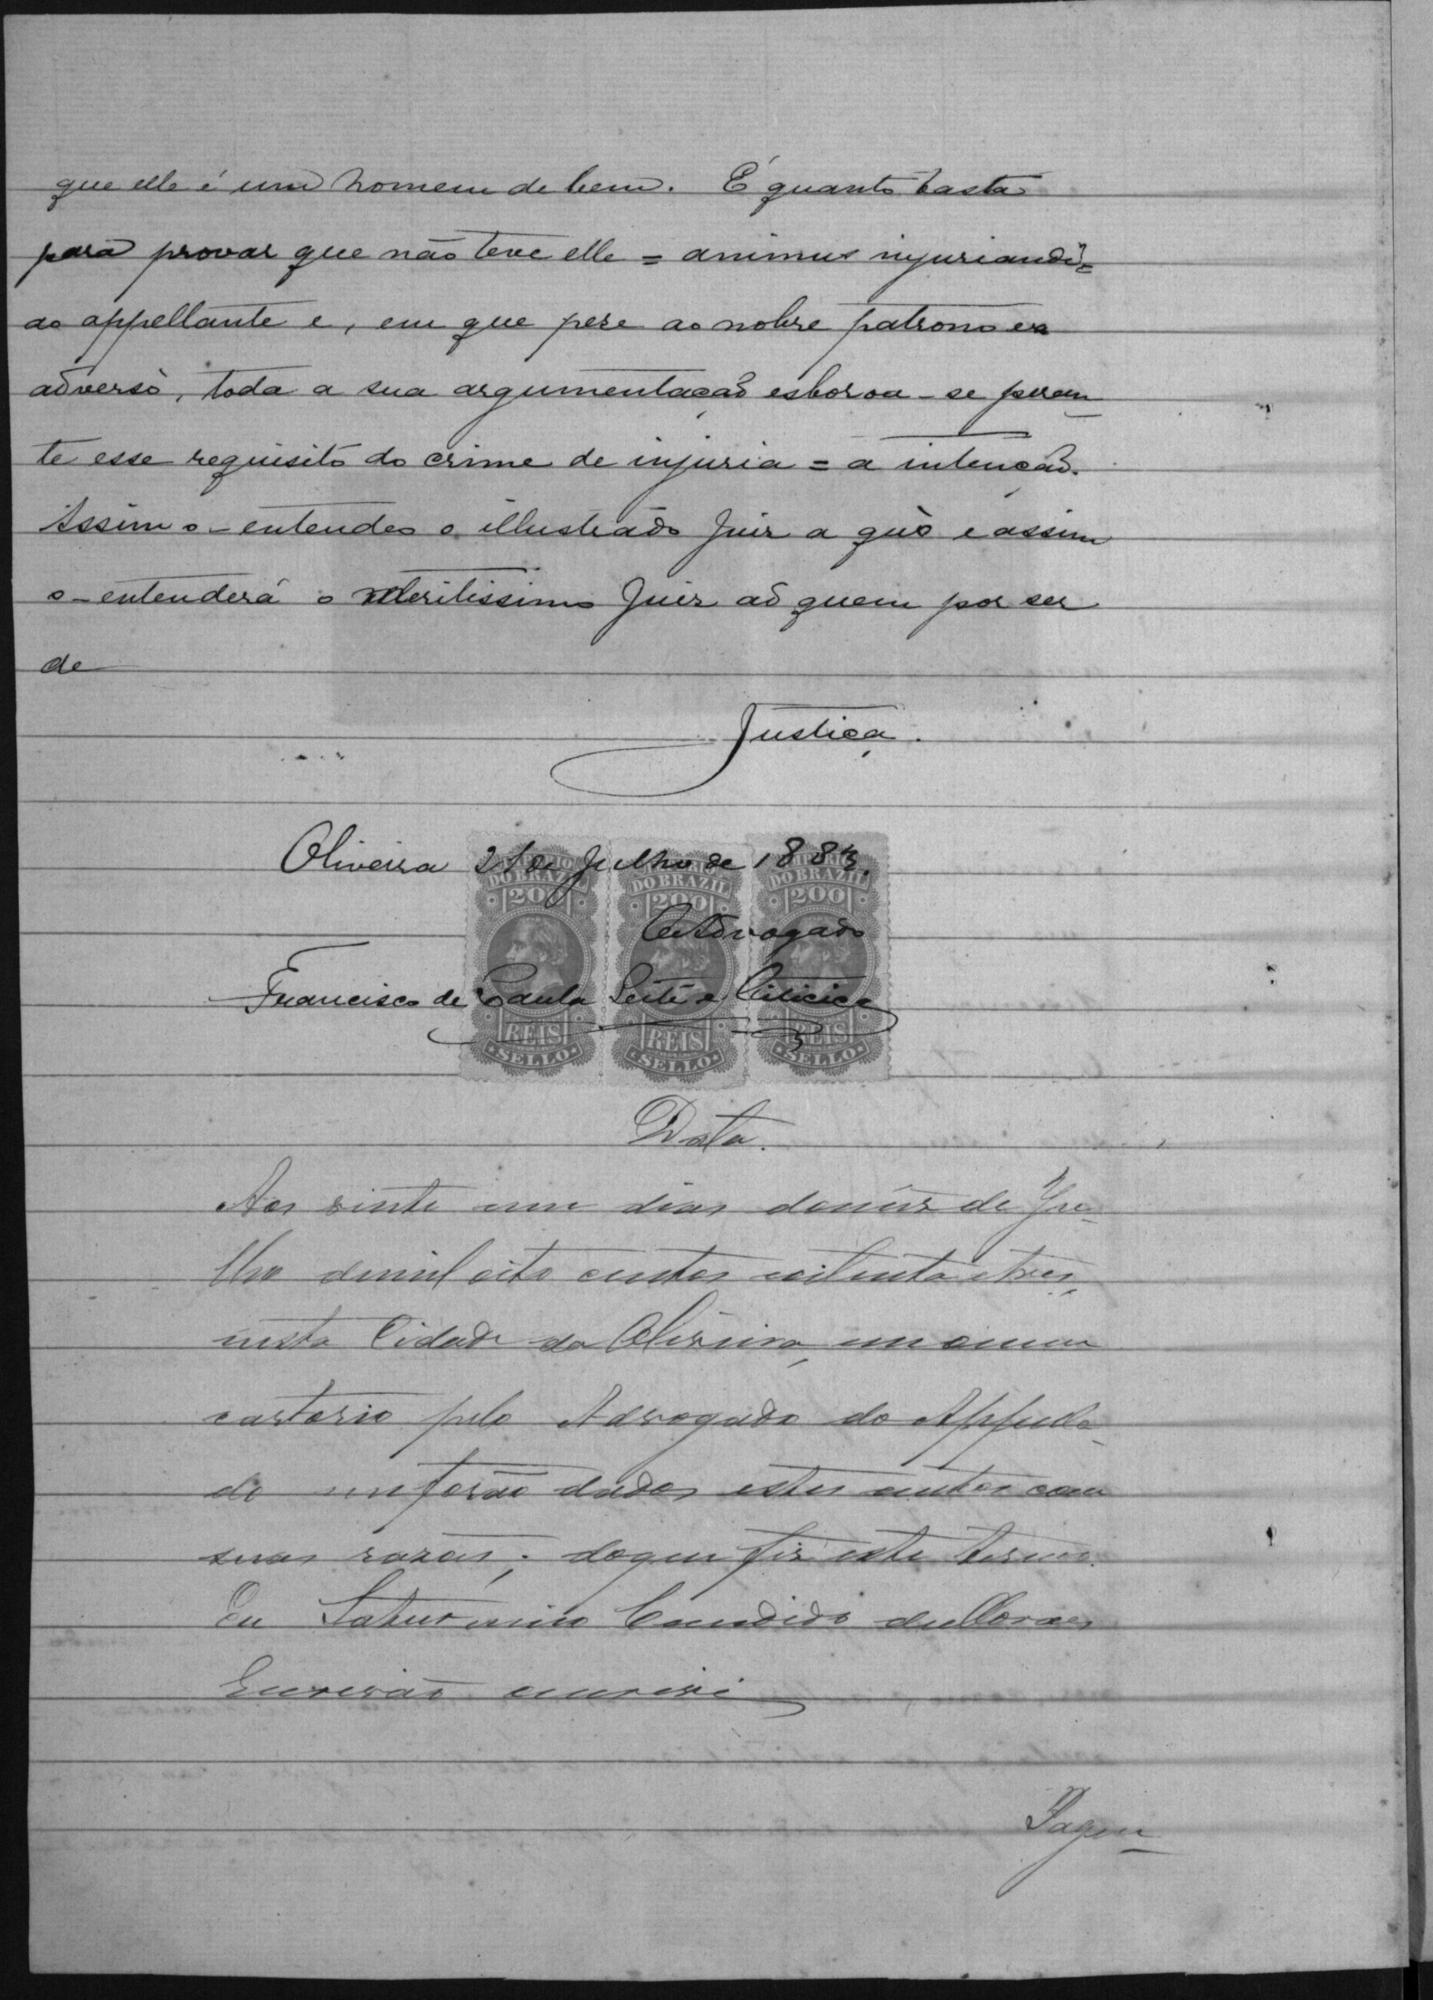 que elle é um homem de bem. É quanto basta
para provar que não teve elle = animus injuriandi =
ao appellante e, em que pese ao nobre patrono ex
adverso, toda a sua argumentação esboroa-se peran-
te esse requisito do crime de injuria = a intenção.
Assim o-entendeo o illustrado Juiz a quò e assim
o-entenderá o Meritissimo Juiz ad quem por ser
de
Justiça.
Oliveira 21 de Julho de 1883.
O Advogado
Francisco de Paula Leite e Oiticica
IMPERIO DO BRAZIL 200 REIS SELLO
IMPERIO DO BRAZIL 200 REIS SELLO
IMPERIO DO BRAZIL 200 REIS SELLO
Data.
Aos vinte um dias do mez de Ju-
lho de mil oito centos e oitenta e tres,
nesta Cidade da Oliveira, em o meu
cartorio pelo Advogado do Appella-
do me forão dados estes autos com
suas razões; do que fiz este termo.
Eu Saturnino Candido de Moraes
Escrivão escrevi
Pagou